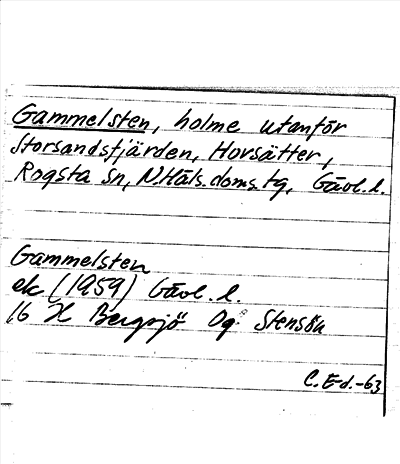 Gammelsten, holme utanför
Storsandsfjärden, Horsätter,
Rogsta sn, N.Häls.doms.tg, Gävl.l.
Gammelsten
ek (1959) Gävl.l.
16 H Bergsjö Og Stensön
C.Ed.-63